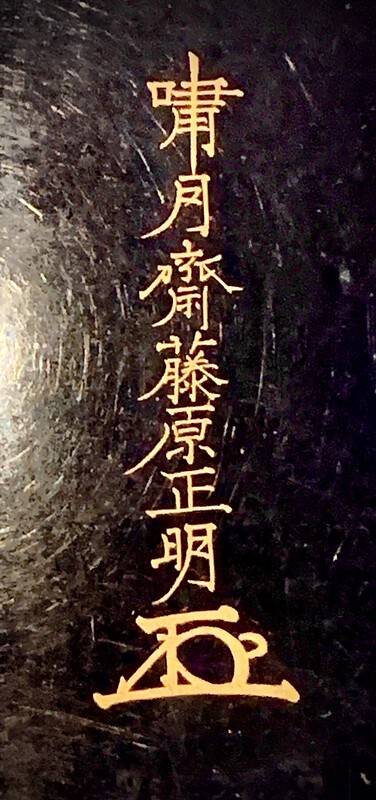 嘯月齋藤原正明